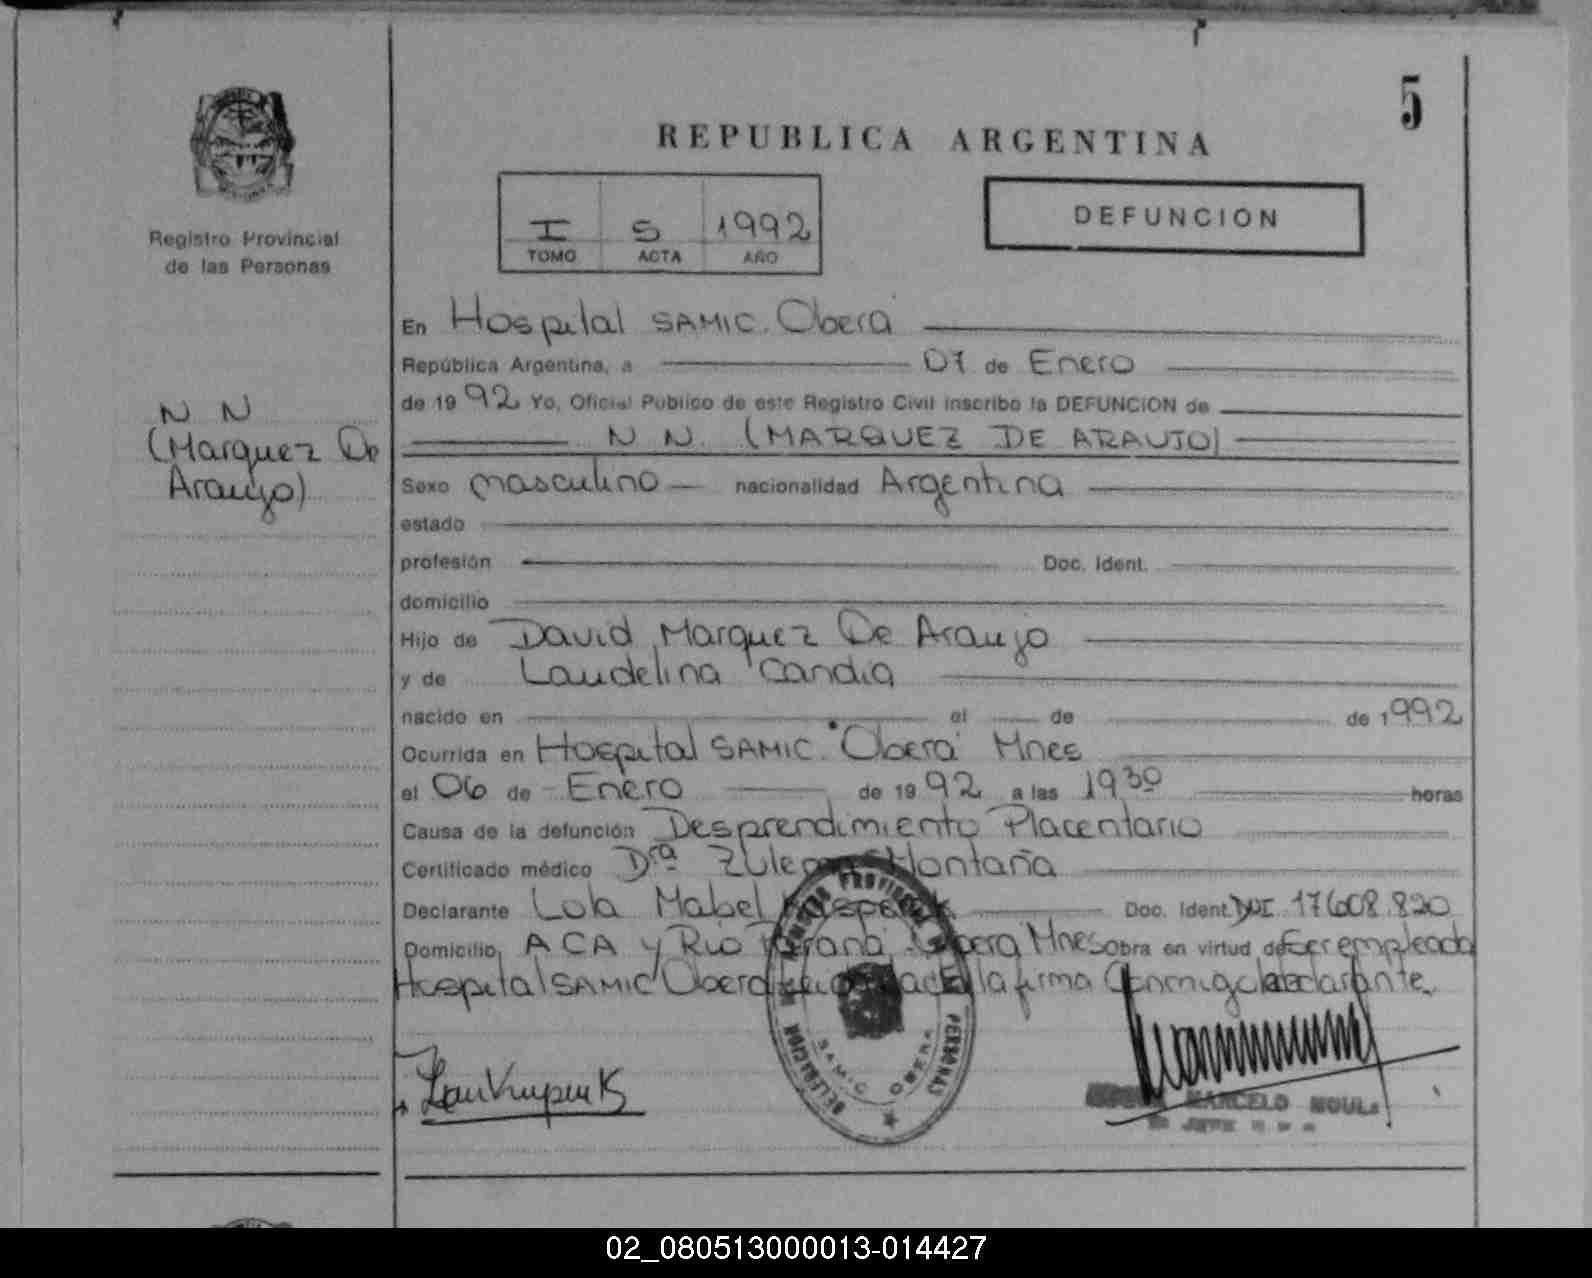 5
REPUBLICA ARGENTINA
Registro Provincial
de las Personas
I 5 1992
TOMO ACTA AÑO
DEFUNCION
N N
(Marquez De
Araujo)
En Hospital SAMIC. Oberá
República Argentina, a 07 de Enero
de 1992 Yo, Oficial Publico de este Registro Civil inscribo la DEFUNCION de
N N. (MARQUEZ DE ARAUJO)
Sexo masculino nacionalidad Argentina
estado
profesión Doc. Ident.
domicilio
Hijo de David Marquez De Araujo
y de Laudelina Candia
nacido en el de de 1992
Ocurrida en Hospital SAMIC. Oberá Mnes
el 06 de Enero de 1992 a las 19 30 horas
Causa de la defunción Desprendimiento Placentario
Certificado médico Dra Montaña
Declarante Lola Mabel Doc. Ident. DNI 17.608.820
Domicilio ACA y Rio Parana Obera Mnes obra en virtud de Ser empleada
Hospital SAMIC Obera acta la firma Conmigo declarante.
DELEGACION PERSONAS
SAMIC OBERA
MARCELO
02_080513000013-014427